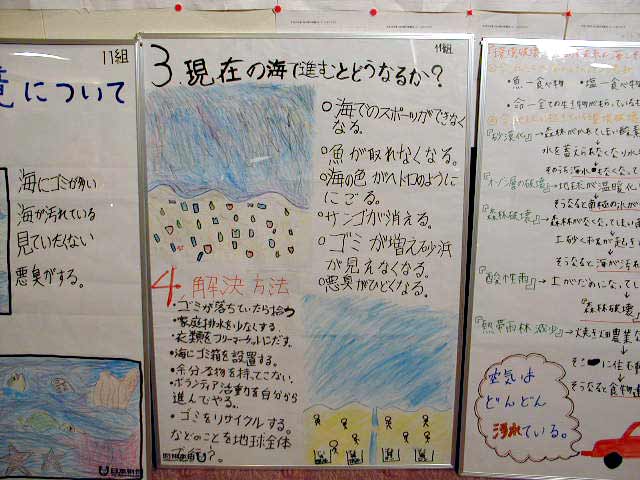 11組
きについて
海にゴミが多い
海が汚れている
見ていたくない
悪臭がする。
11組
3.現在の海で進むとどうなるか？
○海でのスポーツができなく
なる。
○魚が取れなくなる。
○海の色がヘドロのように
にごる。
○サンゴが消える。
○ゴミが増え砂浜
が見えなくなる。
○悪臭がひどくなる。
4.解決方法
・ゴミが落ちていたら拾う
・家庭排水を少なくする。
・衣類をフリーマーケットにだす。
・海にゴミ箱を設置する。
・余分な物を持ってこない。
・ボランティア活動を自分から
進んでやる。
・ゴミをリサイクルする。
などのことを地球全体
・魚－食べ物
・塩－食べ
『砂漠化』→森林が
水を蓄えられなくなり
『オゾン層の破壊』→地球が温暖化
そうなると南極の氷が
『森林破壊』→森林がなくなってしまい
そうなると海が汚
『酸性雨』→土がだめになってし
『森林破壊』
『熱帯雨林減少』→焼き畑農業な
そうなると食物連
空気は
どんどん
汚れている。